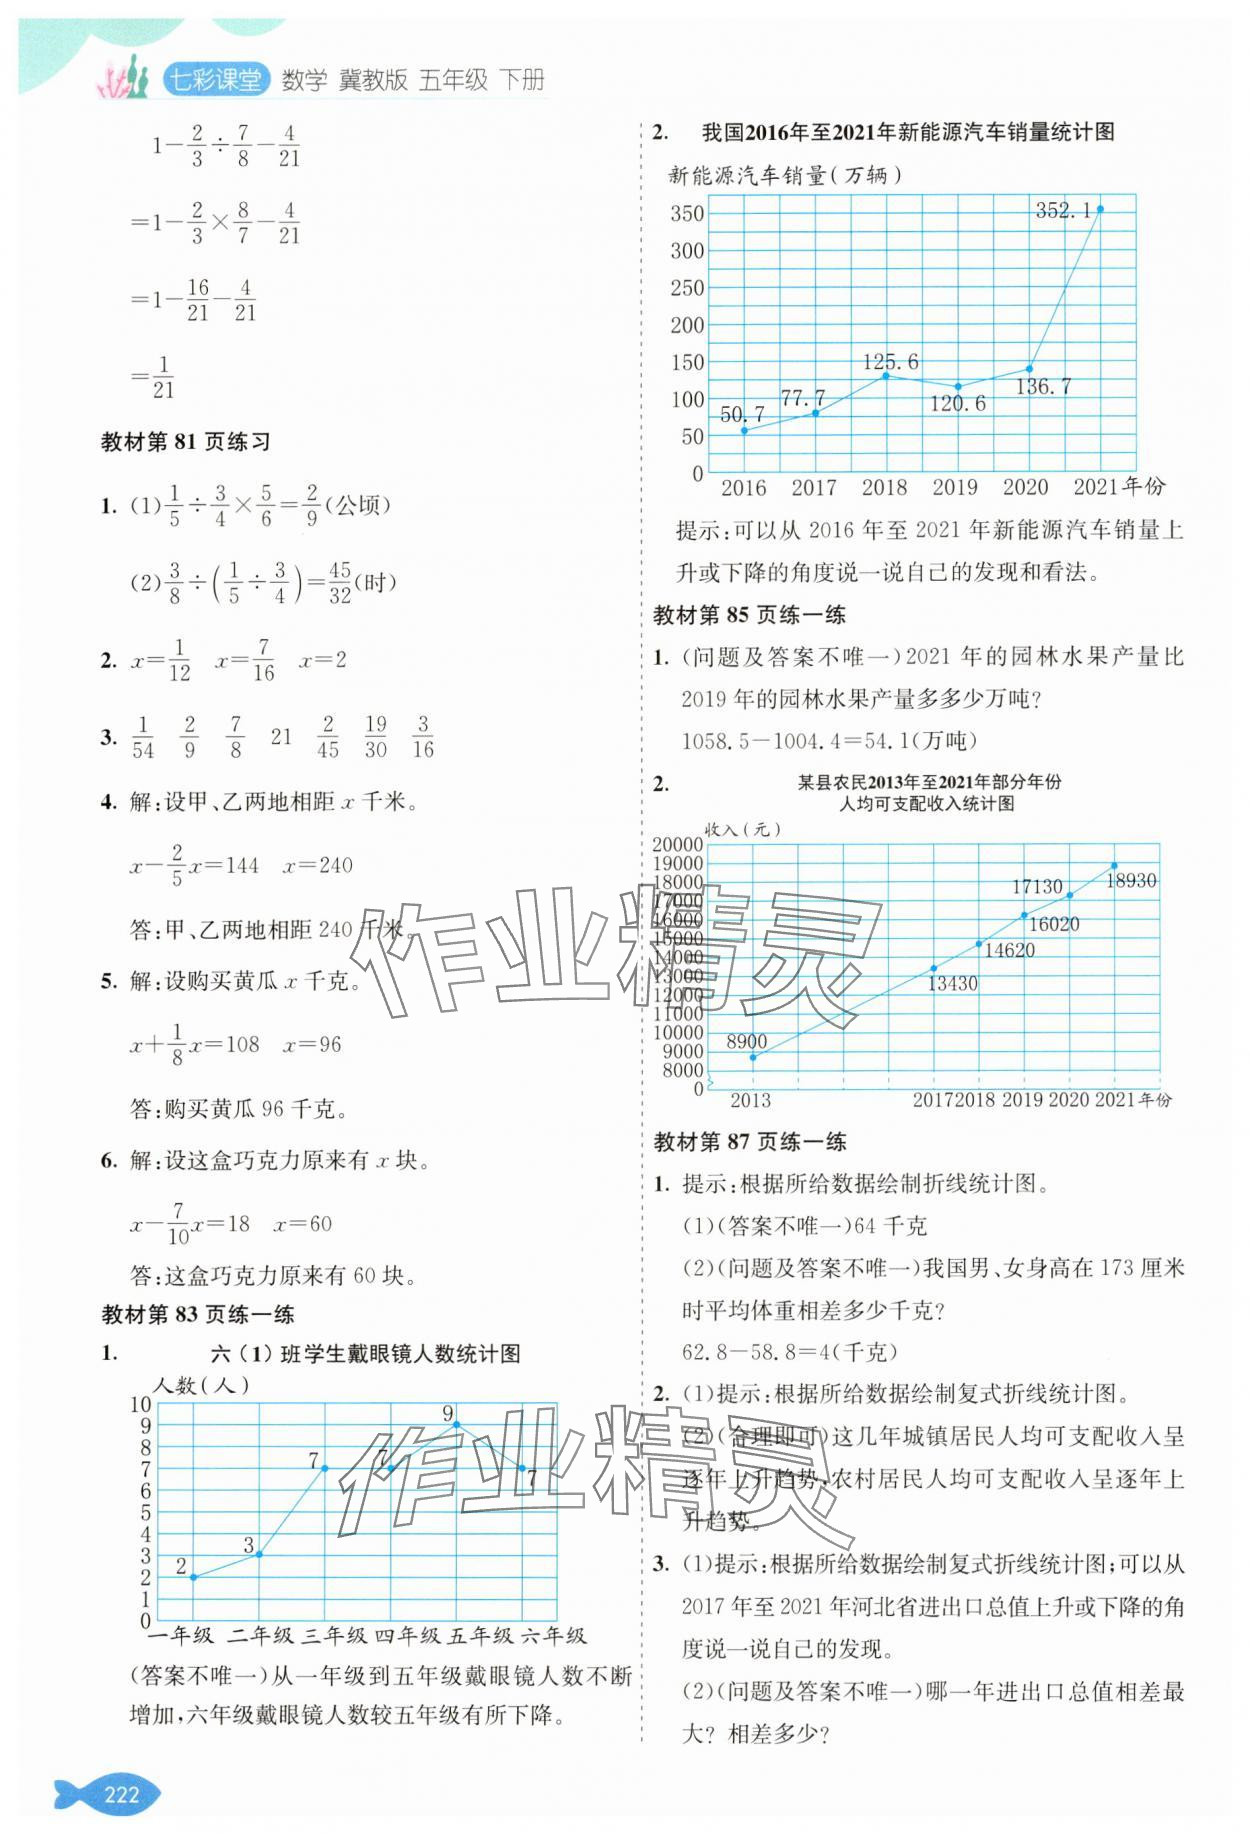 七彩课堂 数学 冀教版 五年级 下册
1－2/3÷7/8－4/21
＝1－2/3×8/7－4/21
＝1－16/21－4/21
＝1/21
教材第 81 页练习
1. (1)1/5÷3/4×5/6＝2/9(公顷)
(2)3/8÷(1/5÷3/4)＝45/32(时)
2. x＝1/12 x＝7/16 x＝2
3. 1/54 2/9 7/8 21 2/45 19/30 3/16
4. 解:设甲、乙两地相距 x 千米。
x－2/5x＝144 x＝240
答:甲、乙两地相距 240 千米。
5. 解:设购买黄瓜 x 千克。
x＋1/8x＝108 x＝96
答:购买黄瓜 96 千克。
6. 解:设这盒巧克力原来有 x 块。
x－7/10x＝18 x＝60
答:这盒巧克力原来有 60 块。
教材第 83 页练一练
1. 六（1）班学生戴眼镜人数统计图
人数(人)
10
9
8
7
6
5
4
3
2
1
0
2 3 7 7 9 7
一年级 二年级 三年级 四年级 五年级 六年级
(答案不唯一)从一年级到五年级戴眼镜人数不断
增加,六年级戴眼镜人数较五年级有所下降。
2. 我国2016年至2021年新能源汽车销量统计图
新能源汽车销量(万辆)
350
300
250
200
150
100
50
0
50.7 77.7 125.6 120.6 136.7 352.1
2016 2017 2018 2019 2020 2021年份
提示:可以从 2016 年至 2021 年新能源汽车销量上
升或下降的角度说一说自己的发现和看法。
教材第 85 页练一练
1. (问题及答案不唯一)2021 年的园林水果产量比
2019 年的园林水果产量多多少万吨?
1058.5－1004.4＝54.1(万吨)
2. 某县农民2013年至2021年部分年份
人均可支配收入统计图
收入(元)
20000
19000
18000
17000
16000
15000
14000
13000
12000
11000
10000
9000
8000
0
8900 13430 14620 16020 17130 18930
2013 2017 2018 2019 2020 2021年份
教材第 87 页练一练
1. 提示:根据所给数据绘制折线统计图。
(1)(答案不唯一)64 千克
(2)(问题及答案不唯一)我国男、女身高在 173 厘米
时平均体重相差多少千克?
62.8－58.8＝4(千克)
2. (1)提示:根据所给数据绘制复式折线统计图。
(2)(合理即可)这几年城镇居民人均可支配收入呈
逐年上升趋势,农村居民人均可支配收入呈逐年上
升趋势。
3. (1)提示:根据所给数据绘制复式折线统计图;可以从
2017 年至 2021 年河北省进出口总值上升或下降的角
度说一说自己的发现。
(2)(问题及答案不唯一)哪一年进出口总值相差最
大? 相差多少?
作业精灵
作业精灵
222